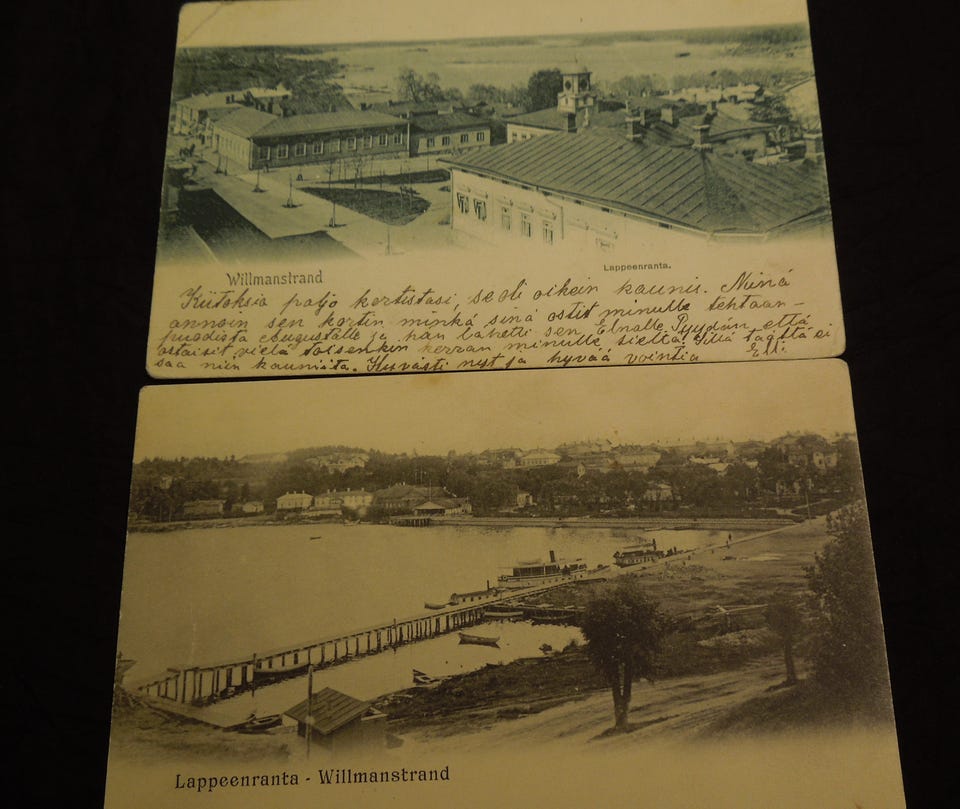 Willmanstrand
Lappeenranta.
Kiitoksia paljo kortistasi, se oli oikein kaunis. Minä
annoin sen kortin minkä sinä ostit minulle tehtaan-
puodista Augustalle ja hän lähetti sen Elnalle. Pyydän, että
ostaisit vielä toisenkin kerran minulle sieltä. Sillä täältä ei
saa niin kauniita. Hyvästi nyt ja hyvää vointia Elli.
Lappeenranta - Willmanstrand